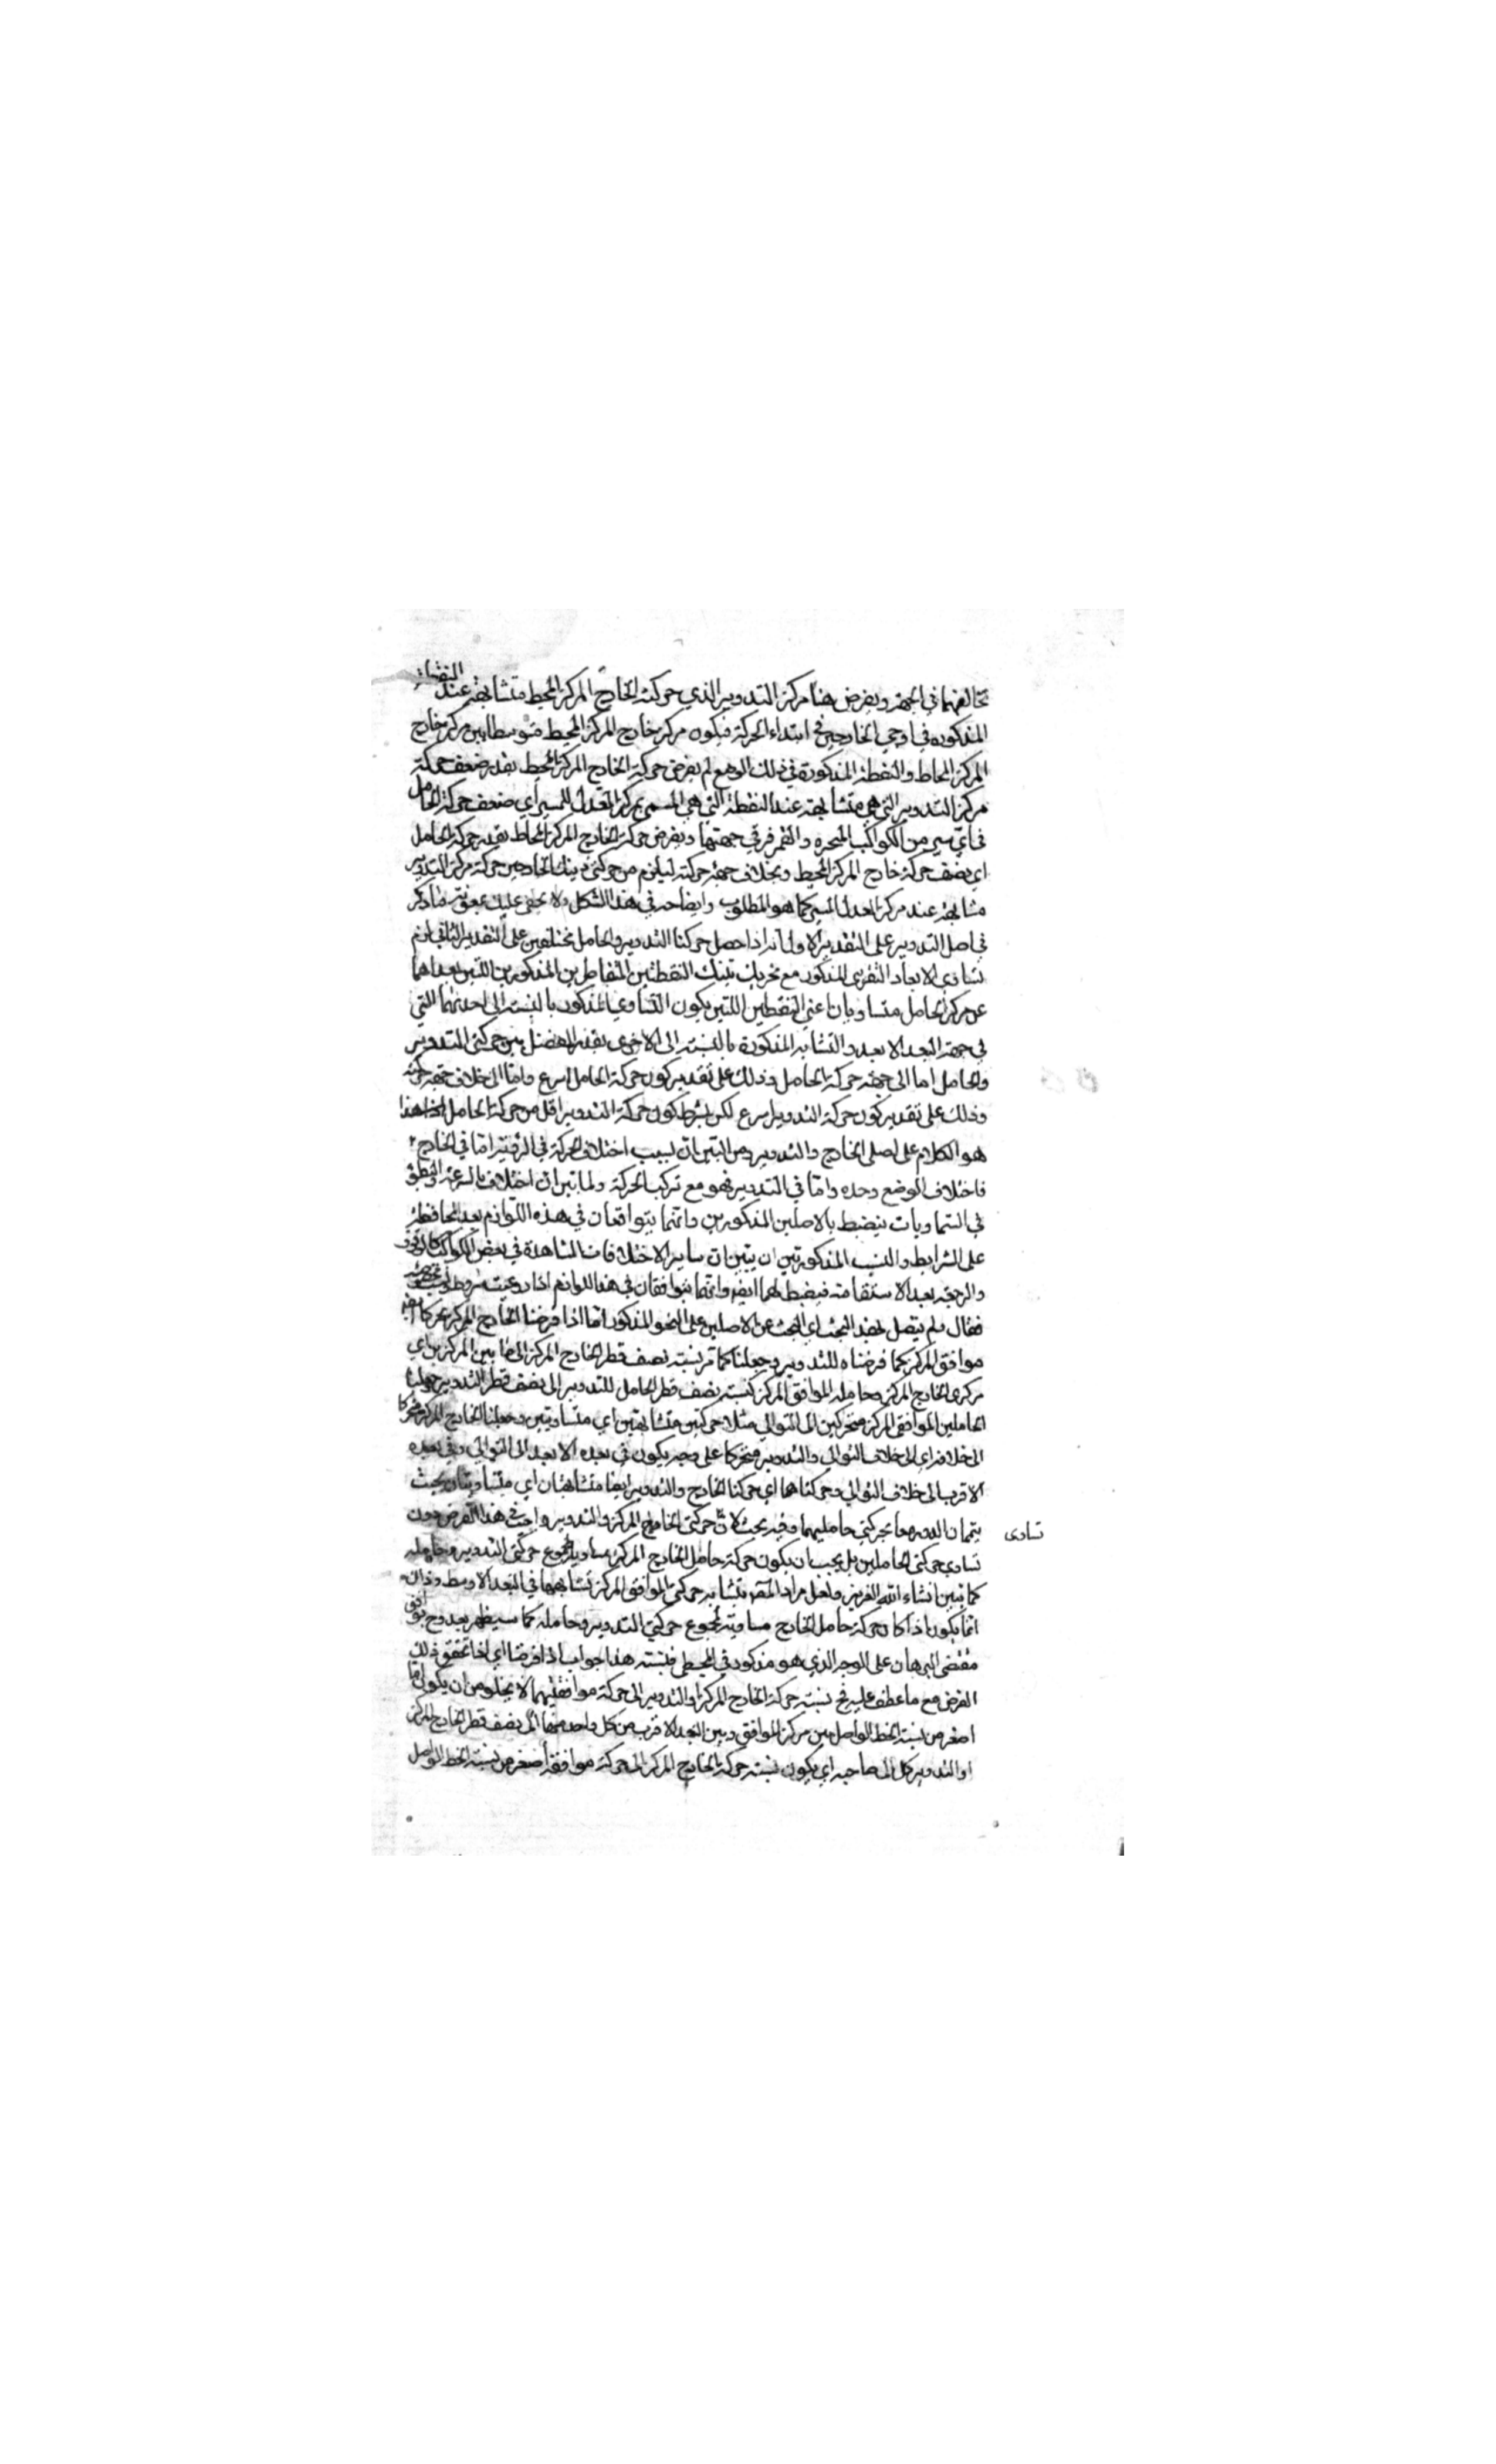 تخالفهما في الجهة ويفرض هنا مركز التدوير الذي حركة الخارج المركز المحيط متشابهة عند النقطة
المذكورة في اوجي الخارجين في ابتداء الحركة فيكون مركز خارج المركز المحيط متوسطا بين مركز خارج
المركز المحاط والنقطة المذكورة في ذلك الوضع ثم يفرض حركة الخارج المركز المحيط بقدر ضعف حركة
مركز التدوير التي هي متشابهة عند النقطة التي هي المسمى بمركز المعدل للمسير اي ضعف حركة الحامل
في اي سير من الكواكب المتحيرة والقمر في جهتها ويفرض حركة الخارج المركز المحاط بقدر حركة الحامل
اي نصف حركة خارج المركز المحيط وبخلاف جهة حركته ليلزم من حركتي ذينك الخارجين حركة مركز التدوير
متشابهة عند مركز معدل المسير كما هو المطلوب وايضاحه في هذا الشكل ولا يخفى عليك بمعونة ما ذكر
في اصل التدوير على التقدير الاول انه اذا حصل حركتا التدوير والحامل مختلفين على التقدير الثاني لزم
تساوي الابعاد التقريبي المذكور مع تحريك تينك النقطتين المتقاطرين المذكورين اللتين بعداهما
عن مركز الحامل متساويان اعني النقطتين اللتين يكون التساوي المذكور بالنسبة الى احديهما التي
في جهة البعد الابعد والتشابه المذكورة بالنسبة الى الاخرى بقدر الفضل بين حركتي التدوير
والحامل اما الى جهة حركة الحامل وذلك على تقدير كون حركة الحامل اسرع واما الى خلاف جهة حركته
وذلك على تقدير كون حركة التدوير اسرع لكن بشرط كون حركة التدوير اقل من حركة الحامل هذا
هو الكلام على اصلي الخارج والتدوير ومن البين ان سبب اختلاف الحركة في الرؤية اما في الخارج
فاختلاف الوضع وحده واما في التدوير فهو مع تركب الحركة ولما تبين ان اختلاف بالسرعة والبطؤ
في السماويات ينضبط بالاصلين المذكورين وانهما يتوافقان في هذه اللوازم بعد المحافظة
على الشرايط والنسب المذكورتين ان يتبين ان ساير الاختلافات المشاهدة في بعض الكواكب كالوقوف
والرجعة بعد الاستقامة فينضبط بهما ايضا وانهما يتوافقان في هذا اللوازم اذا روعيت شروط
فقال ولم يتصل بهذا البحث اي البحث عن الاصلين على النحو المذكور انا اذا فرضنا الخارج المركز محركا
موافق المركز كما فرضناه للتدوير وجعلنا كما مر نسبة نصف قطر الخارج المركز الى ما بين المركزين اي
مركزي الخارج المركز وحامله الموافق المركز كنسبة نصف قطر الحامل للتدوير الى نصف قطر التدوير وجعلنا
الحاملين الموافقي المركز متحركين الى التوالي مثلا حركتين متشابهتين اي متساويتين وجعلنا الخارج المركز متحركا
الى خلافه اي الى خلاف التوالي والتدوير متحركا على وجه يكون في بعده الابعد الى التوالي وفي بعده
الاقرب الى خلاف التوالي وحركتاهما اي حركتا الخارج والتدوير ايضا متشابهتان اي متساويتان بحيث
يتمان الدورة معا بحركتي حامليهما وفيه بحث لان تساوى حركتي الخارج المركز والتدوير واجب في هذا الفرض دون
تساوي حركتي الحاملين بل يجب ان يكون حركة حامل الخارج المركز مساوية لمجموع حركتي التدوير وحامله
كما تبين انشاء الله العزيز ولعل مراد المصنف بتشابه حركتي الموافق المركز تشابههما في البعد الاوسط وذلك
انما يكون اذا كان حركة حامل الخارج مساوية لمجموع حركتي التدوير وحامله كما سيظهر بعد وح
مقتضى البرهان على الوجه الذي هو مذكور في المجسطي فنسبة هذا جواب اذا فرضنا اي اذا تحقق ذلك
الفرض مع ما عطف عليه في نسبة حركة الخارج المركز او التدوير الى حركة موافقيهما لا يخلو من ان يكون اما
اصغر من نسبة الخط الواصل بين مركز الموافق وبين البعد الاقرب من كل واحد منهما الى نصف قطر الخارج المركز
او التدوير كل الى صاحبه اي يكون نسبة حركة الخارج المركز الى حركة موافقه اصغر من نسبة الخط الواصل